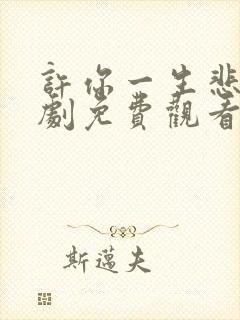 許你一生悲
劇免費觀看
斯邁夫